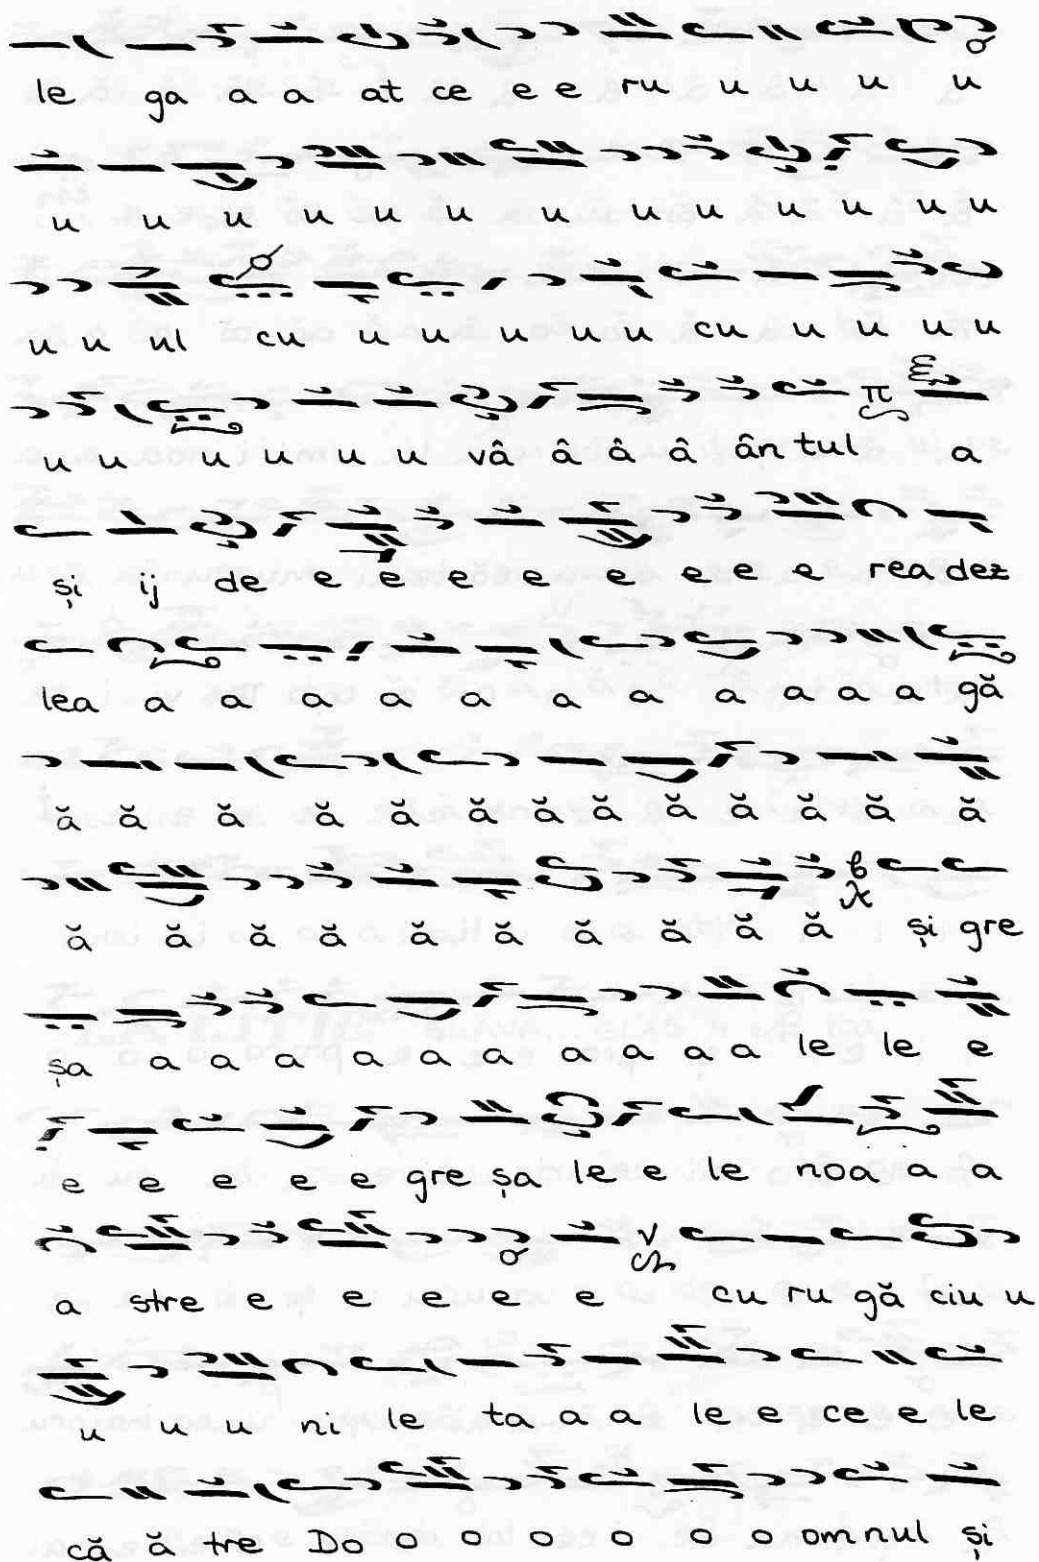 le ga a a at ce e e ru u u u u
u u u u u u u u u u u u u
u u ul cu u u u u u cu u u u u
u u u u u u vâ â â â ân tul a
și ij de e e e e e e e e rea dez
lea a a a a a a a a a a a gă
ă ă ă ă ă ă ă ă ă ă ă ă ă
ă ă ă ă ă ă ă ă ă ă și gre
șa a a a a a a a a a le le e
e e e e e gre șa le e le noa a a
a stre e e e e e cu ru gă ciu u
u u u ni le ta a a le e ce e le
că ă tre Do o o o o o omnul și